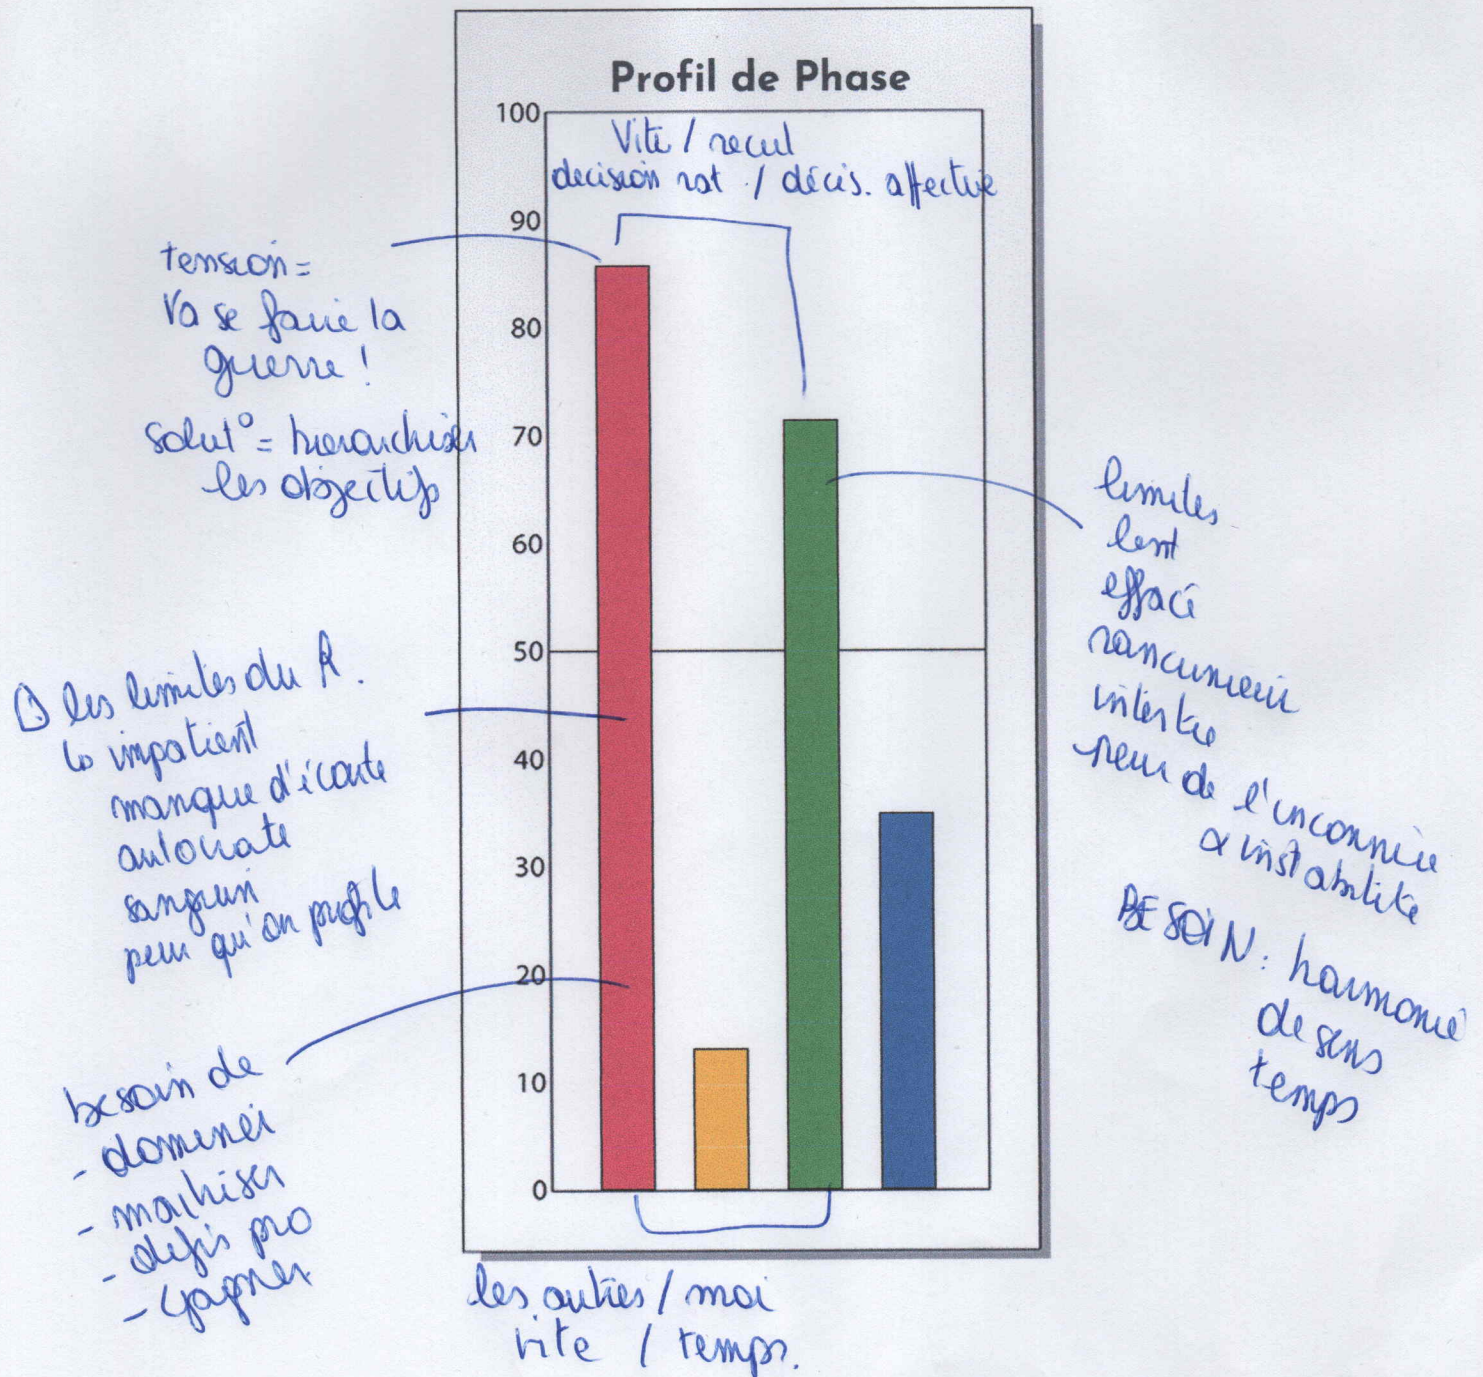 Profil de Phase
100
90
80
70
60
50
40
30
20
10
0
Vite / recul
decision rat. / décis. affective
tension =
Va se faire la
guerre !
solut° = hierarchiser
les objectifs
les limites du R.
impatient
manque d'écoute
autocrate
sanguin
peur qu'on profite
besoin de
- dominer
- maitriser
- defis pro
- gagner
limites
lent
effacé
rancunier
peur de l'inconnue
instabilité
BESOIN : harmonie
de sens
temps
les autres / moi
vite / temps.